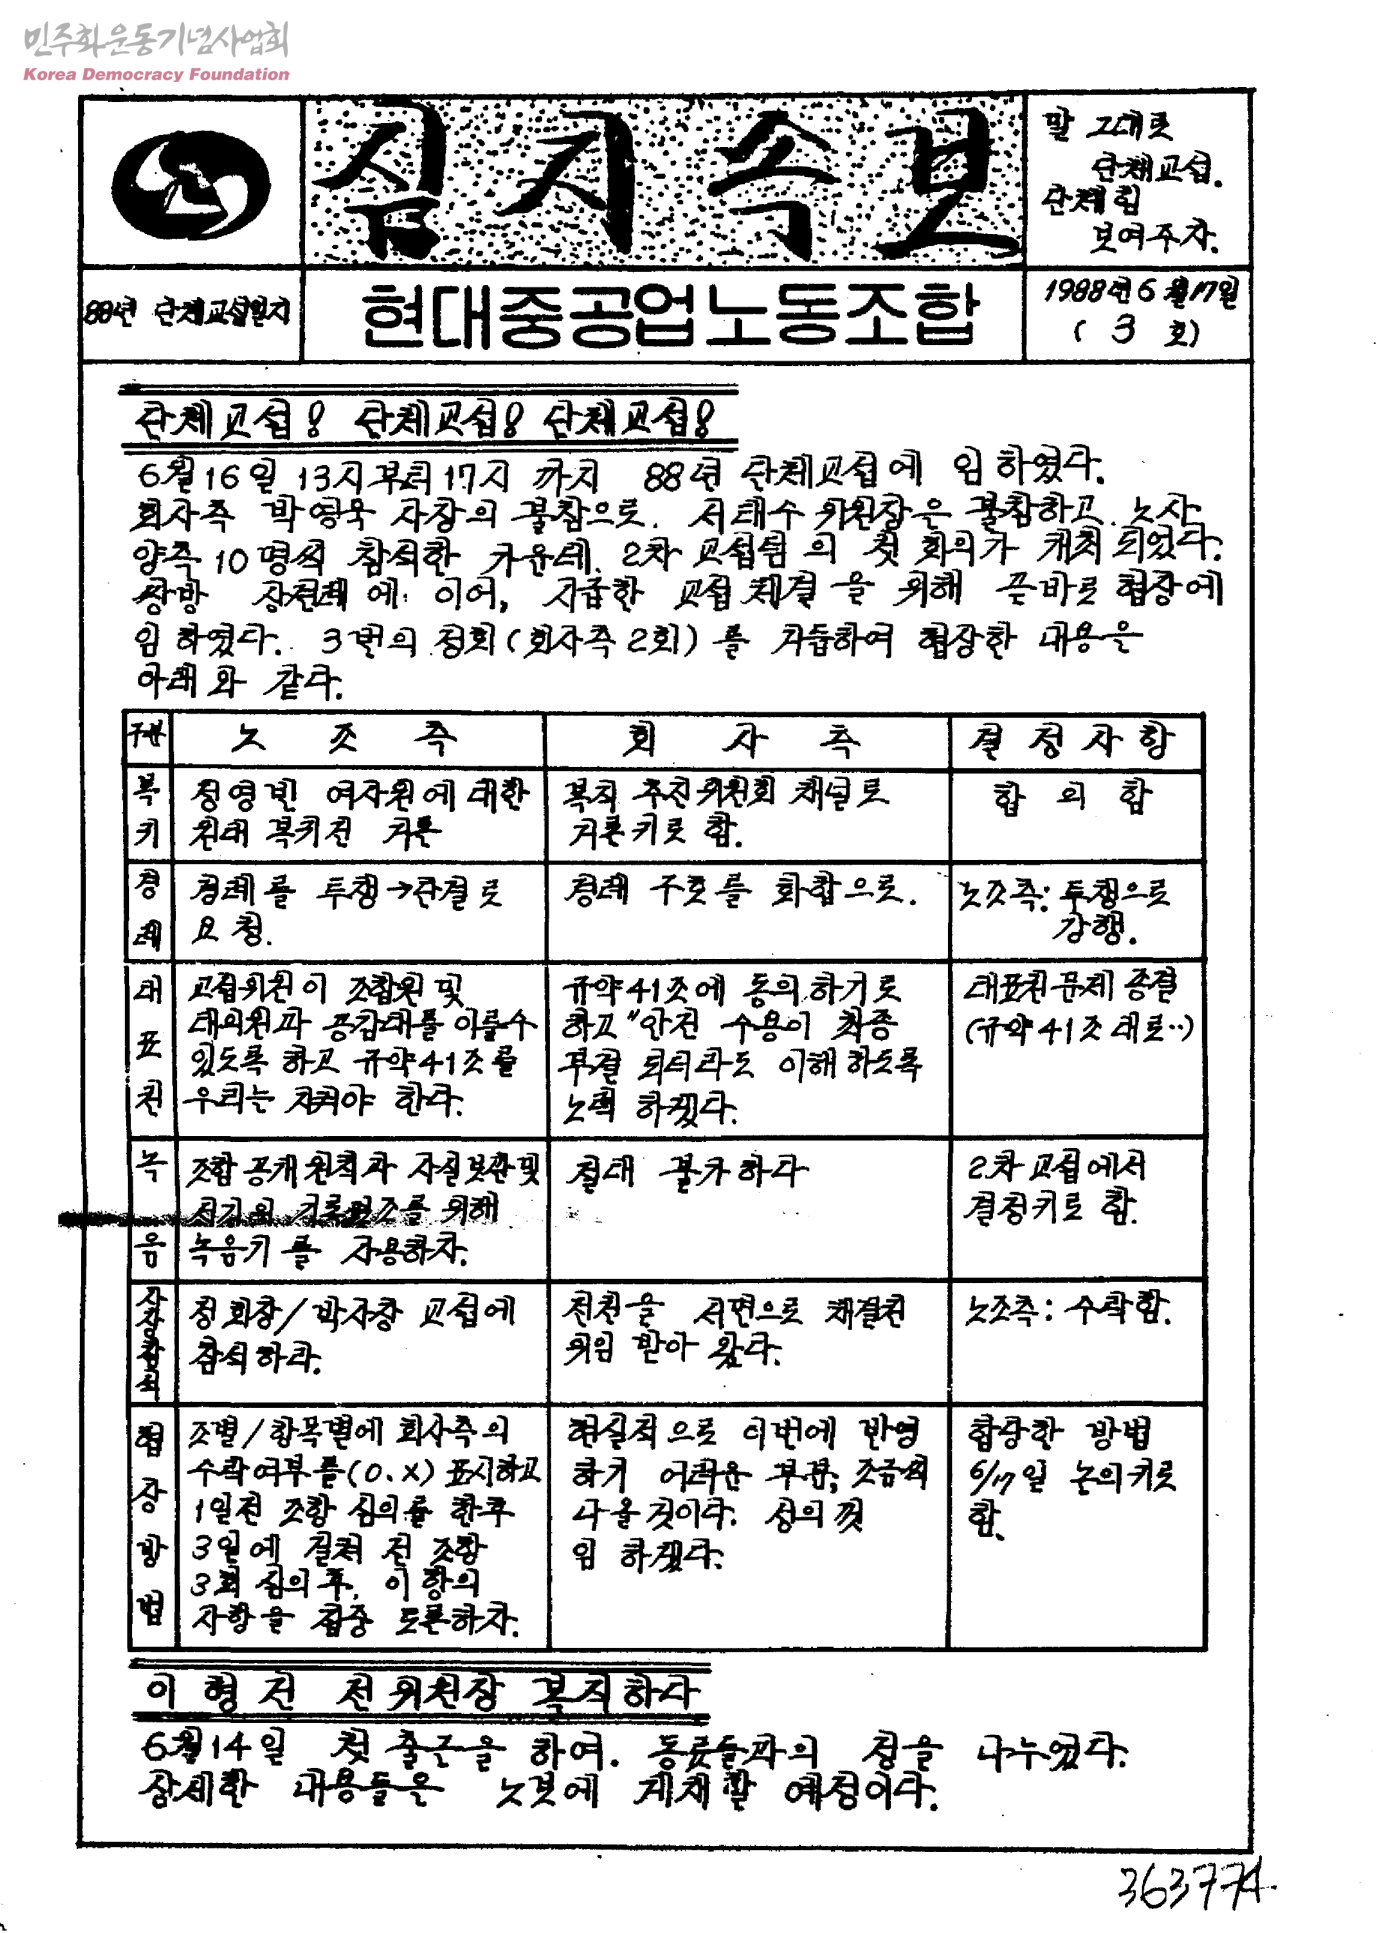 민주화운동기념사업회
Korea Democracy Foundation
심지속보
말 그대로
단체교섭.
단체힘
보여주자.
88년 단체교섭일지
현대중공업노동조합
1988년 6월 17일
( 3 호)
단체교섭! 단체교섭! 단체교섭!
6월 16일 13시부터 17시 까지 88년 단체교섭에 임하였다.
회사측 박영욱 사장의 불참으로, 서태수 위원장은 불참하고, 노사
양측 10명씩 참석한 가운데, 2차 교섭팀의 첫 회의가 개최 되었다.
쌍방 상견례에 이어, 시급한 교섭 체결을 위해 곧바로 협상에
임하였다. 3번의 정회(회사측 2회)를 거듭하여 협상한 내용은
아래와 같다.
구분 노 조 측 회 사 측 결정사항
복직
정영빈 여사원에 대한
원대 복귀건 거론
복직 추진위원회 채널로
거론키로 함.
합 의 함
경례
경례를 투쟁→단결로
요청.
경례 구호를 화합으로.
노조측: 투쟁으로
강행.
대표권
교섭위원이 조합원 및
대의원과 공감대를 이룰수
있도록 하고 규약41조를
우리는 지켜야 한다.
규약41조에 동의하기로
하고 "안건 수용이 최종
부결 되더라도 이해하도록
노력 하겠다.
대표권문제 종결
(규약41조 대로..)
녹음
조합 공개원칙과 사실보관 및
시기의 기록보조를 위해
녹음기를 사용하자.
절대 불가하다
2차 교섭에서
결정키로 함.
사장참석
정회장/박사장 교섭에
참석하라.
전권을 서면으로 체결권
위임 받아 왔다.
노조측: 수락함.
협상방법
조별/항목별에 회사측의
수락여부를(O.X) 표시하고
1일전 조항 심의를 한후
3일에 걸쳐 전 조항
3회 심의후, 이항의
사항을 집중 토론하자.
현실적으로 이번에 반영
하기 어려운 부분, 조금씩
나올것이다. 성의껏
임 하겠다.
합당한 방법
6/17일 논의키로
함.
이형건 전위원장 복직하다
6월14일 첫 출근을 하여, 동료들과의 정을 나누었다.
상세한 내용들은 노보에 게재할 예정이다.
363774